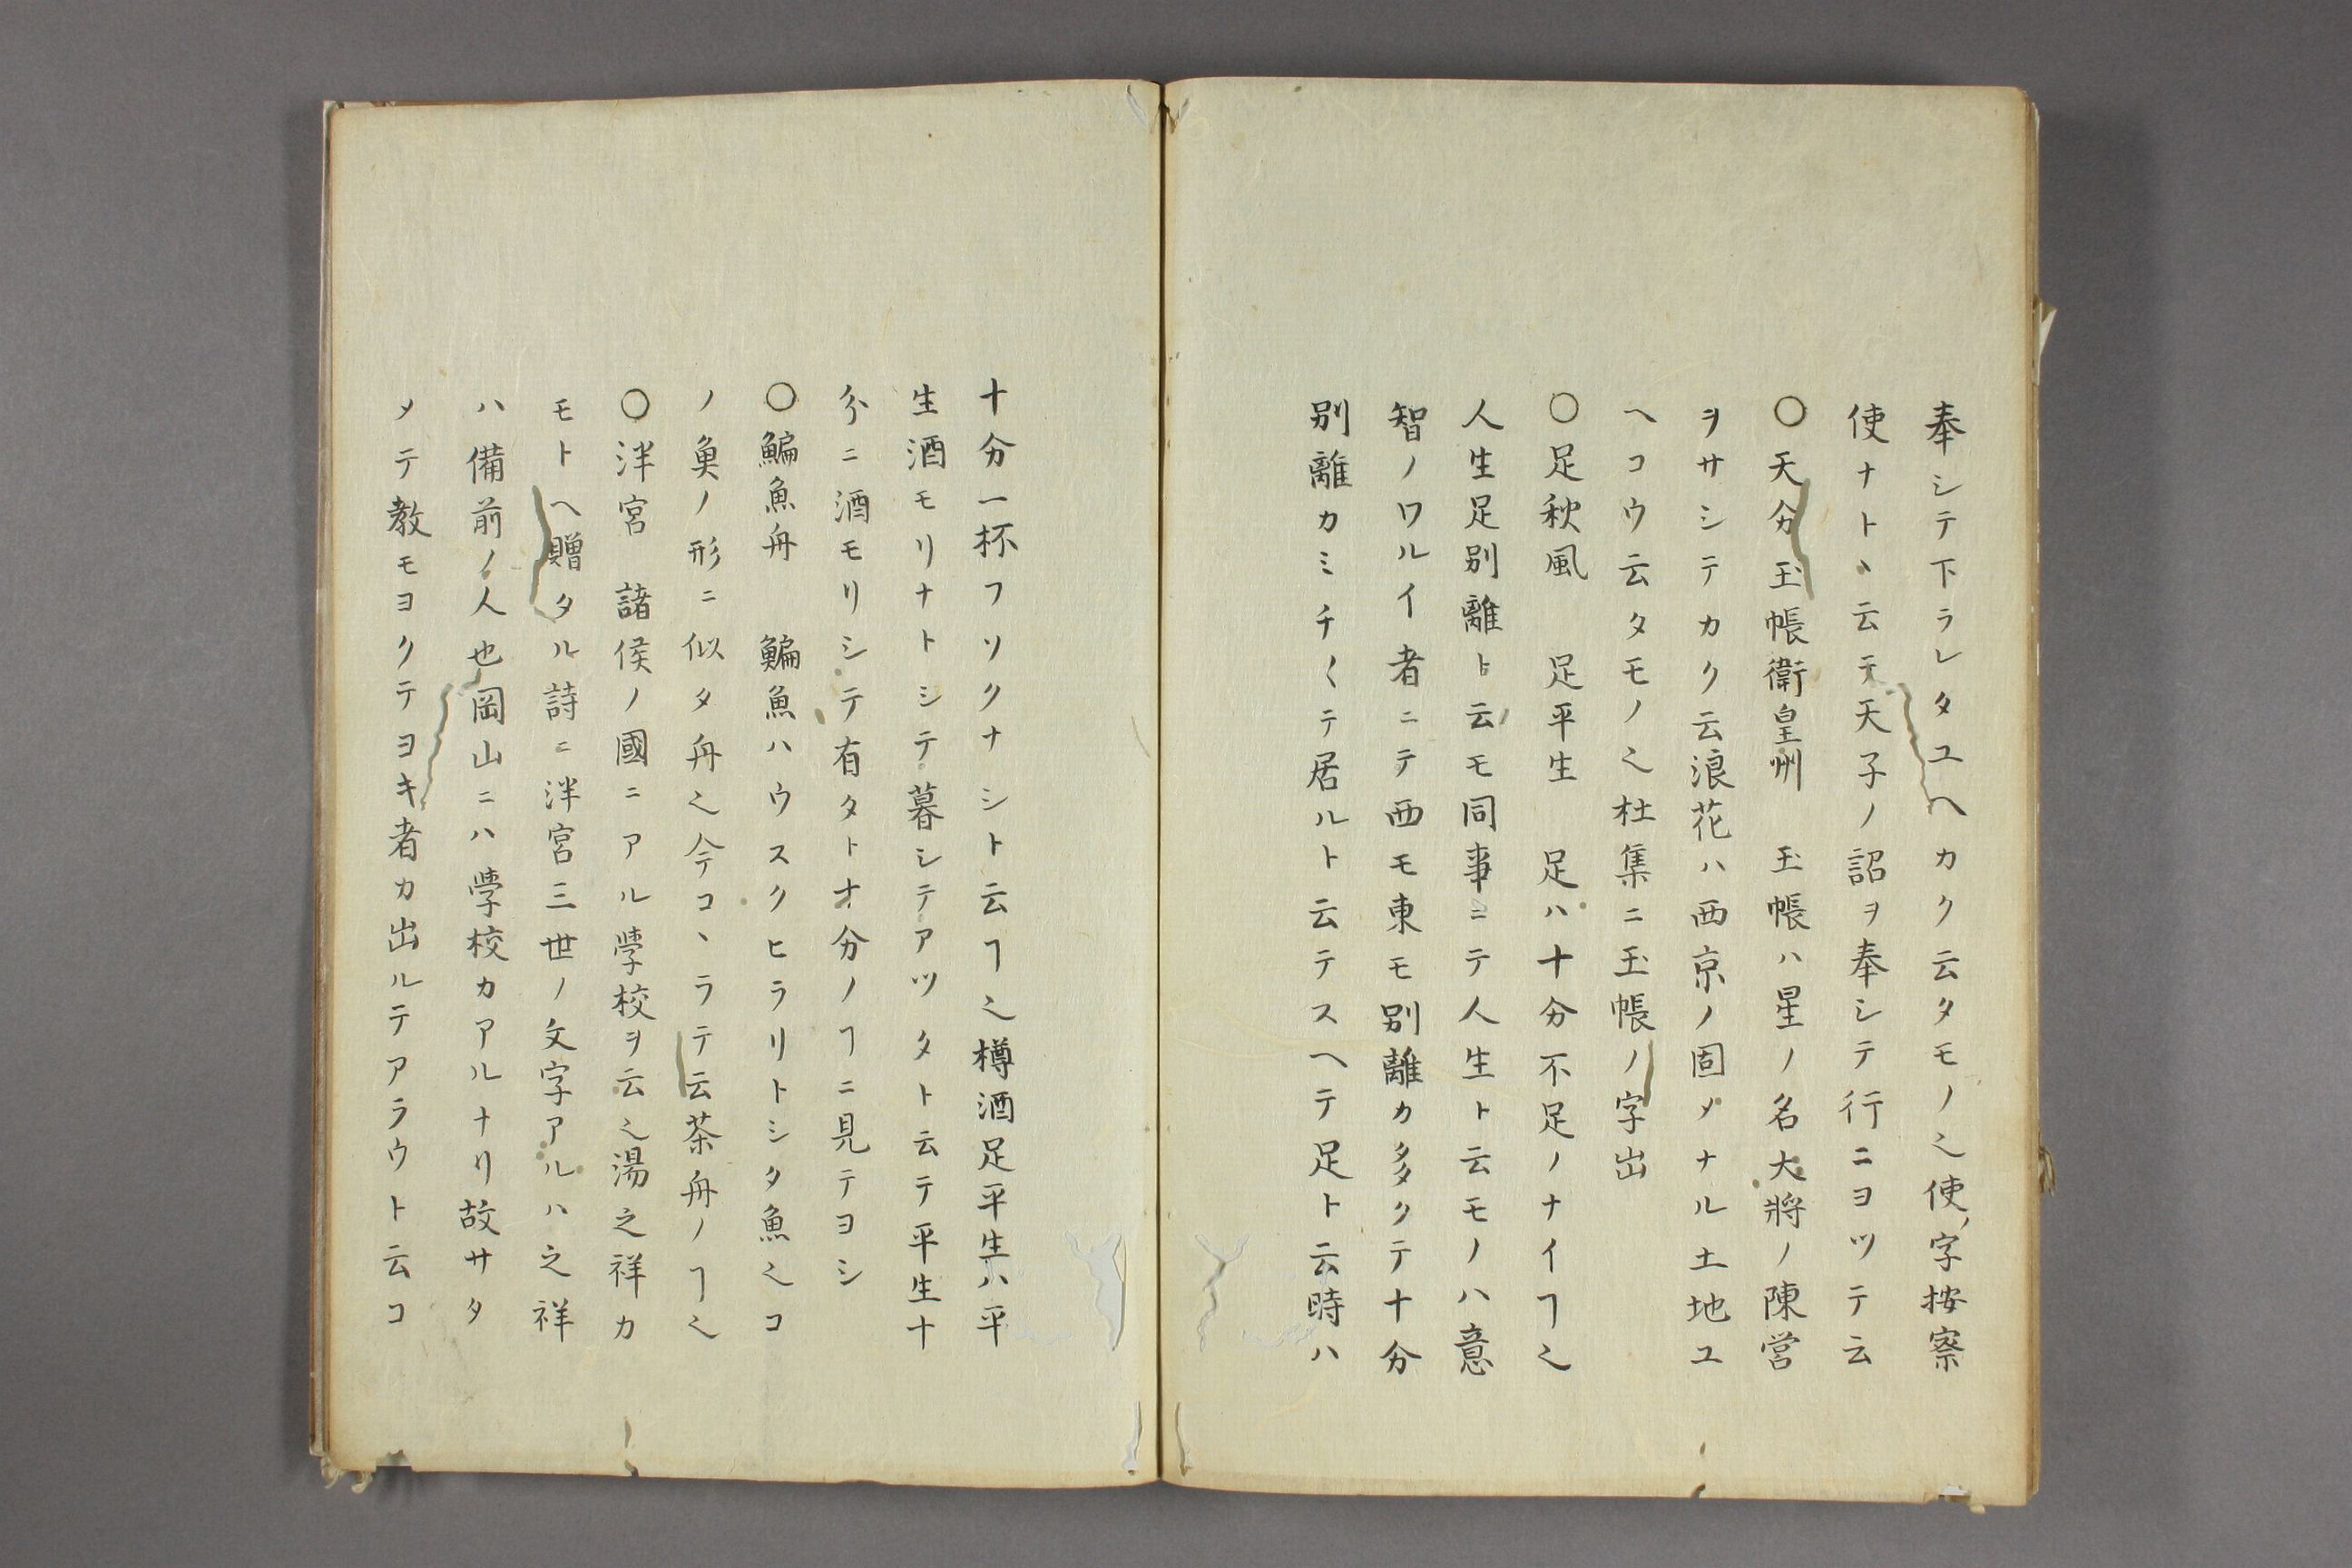 奉シテ下ラレタユヘカク云タモノ之使ノ字按察
使ナトヽ云テ天子ノ詔ヲ奉シテ行ニヨツテ云
〇天分玉帳衛皇州　玉帳ハ星ノ名大將ノ陳営
ヲサシテカク云浪花ハ西京ノ固メナル土地ユ
ヘコウ云タモノ之杜集ニ玉帳ノ字出
〇足秋風　足平生　足ハ十分不足ノナイヿ之
人生足別離ト云モ同事ニテ人生ト云モノハ意
智ノワルイ者ニテ西モ東モ別離カ多クテ十分
別離カミチ〱テ居ルト云テスヘテ足ト云時ハ
十分一杯フソクナシト云ヿ之樽酒足平生ハ平
生酒モリナトシテ暮シテアツタト云テ平生十
分ニ酒モリシテ有タトオ分ノヿニ見テヨシ
〇鯿魚舟　鯿魚ハウスクヒラリトシタ魚之コ
ノ魚ノ形ニ似タ舟之今コヽラテ云茶舟ノヿ之
〇泮宮　諸侯ノ國ニアル學校ヲ云之湯之祥カ
モトヘ贈タル詩ニ泮宮三世ノ文字アルハ之祥
ハ備前ノ人也岡山ニハ學校カアルナリ故サタ
メテ教モヨクテヨキ者カ出ルテアラウト云コ